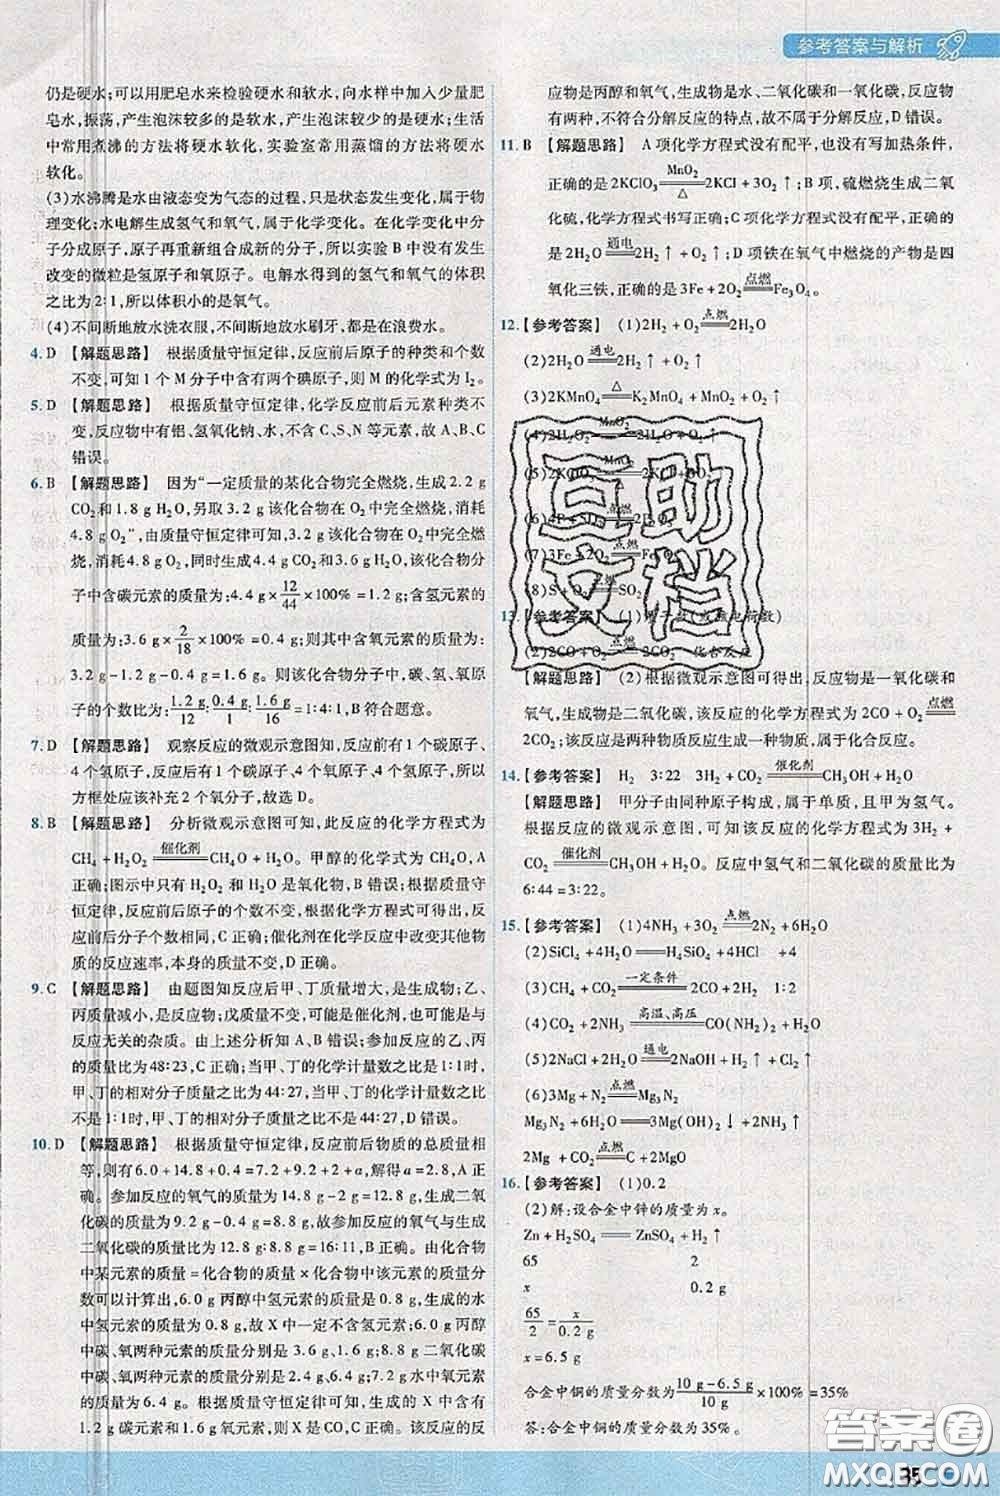 参考答案与解析
仍是硬水;可以用肥皂水来检验硬水和软水,向水样中加入少量肥
皂水,振荡,产生泡沫较多的是软水,产生泡沫较少的是硬水;生活
中常用煮沸的方法将硬水软化,实验室常用蒸馏的方法将硬水
软化。
(3)水沸腾是水由液态变为气态的过程,只是状态发生变化,属于物
理变化;水电解生成氢气和氧气,属于化学变化。在化学变化中分
子分成原子,原子再重新组合成新的分子,所以实验 B 中没有发生
改变的微粒是氢原子和氧原子。电解水得到的氢气和氧气的体积
之比为 2:1,所以体积小的是氧气。
(4)不间断地放水洗衣服,不间断地放水刷牙,都是在浪费水。
4. D 【解题思路】 根据质量守恒定律,反应前后原子的种类和个数
不变,可知 1 个 M 分子中含有两个碘原子,则 M 的化学式为 I₂。
5. D 【解题思路】 根据质量守恒定律,化学反应前后元素种类不
变,反应物中有铝、氢氧化钠、水,不含 C、S、N 等元素,故 A、B、C
错误。
6. B 【解题思路】 因为“一定质量的某化合物完全燃烧,生成 2.2 g
CO₂和 1.8 g H₂O,另取 3.2 g 该化合物在 O₂中完全燃烧,消耗
4.8 g O₂”,由质量守恒定律可知,3.2 g 该化合物在 O₂中完全燃
烧,消耗4.8 g O₂,应生成4.4 g CO₂和3.6 g H₂O,该化合物分
子中含碳元素的质量为:4.4 g×12/44×100% = 1.2 g;含氢元素的
质量为:3.6 g×2/18×100% = 0.4 g;则其中含氧元素的质量为:
3.2 g-1.2 g-0.4 g = 1.6 g。则该化合物分子中,碳、氢、氧原
子的个数比为:1.2 g/12:0.4 g/1:1.6 g/16 = 1:4:1,B 符合题意。
7. D 【解题思路】 观察反应的微观示意图知,反应前有 1 个碳原子、
4 个氢原子,反应后有 1 个碳原子、4 个氢原子、4 个氧原子,所以
方框处应该补充 2 个氧分子,故选 D。
8. B 【解题思路】 分析微观示意图可知,此反应的化学方程式为
CH₄ + H₂O₂ =催化剂= CH₄O + H₂O。甲醇的化学式为 CH₄O,A
正确;图示中只有 H₂O₂ 和 H₂O 是氧化物,B 错误;根据质量守
恒定律,反应前后原子的个数不变,根据化学方程式可得出,反
应前后分子个数相同,C 正确;催化剂在化学反应中改变其他物
质的反应速率,本身的质量不变,D 正确。
9. C 【解题思路】 由题图知反应后甲、丁质量增大,是生成物;乙、
丙质量减小,是反应物;戊质量不变,可能是催化剂,也可能是与
反应无关的杂质。由上述分析知 A、B 错误;参加反应的乙、丙
的质量比为 48:23,C 正确;当甲、丁的化学计量数之比是 1:1时,
甲、丁的相对分子质量之比为 44:27,当甲、丁的化学计量数之比
不是 1:1时,甲、丁的相对分子质量之比不是 44:27,D 错误。
10. D 【解题思路】 根据质量守恒定律,反应前后物质的总质量相
等,则有 6.0 + 14.8 + 0.4 = 7.2 + 9.2 + 2 + a,解得 a = 2.8,A 正
确。参加反应的氧气的质量为 14.8 g-2 g = 12.8 g,生成二氧
化碳的质量为 9.2 g-0.4 g = 8.8 g,故参加反应的氧气与生成
二氧化碳的质量比为 12.8 g:8.8 g = 16:11,B 正确。由化合物
中某元素的质量 = 化合物的质量×化合物中该元素的质量分
数可以计算出,6.0 g 丙醇中氢元素的质量是 0.8 g,生成的水
中氢元素的质量为 0.8 g,故 X 中一定不含氢元素;6.0 g 丙醇
中碳、氧元素的质量分别是 3.6 g、1.6 g;8.8 g 二氧化碳中
碳、氧元素的质量分别是 2.4 g、6.4 g;生成的水中氧元素的
质量为 6.4 g。根据质量守恒定律可知,生成的 X 中含有
1.2 g碳元素和 1.6 g氧元素,则 X 是 CO,D 错误。由题意知,反
应物是丙醇和氧气,生成物是水、二氧化碳和一氧化碳,反应物
有两种,不符合分解反应的特点,故不属于分解反应,D 错误。
11. B 【解题思路】 A 项化学方程式没有配平,也没有写加热条件,
正确的是 2KClO₃ =MnO₂/△= 2KCl + 3O₂↑;B 项,硫燃烧生成二氧
化硫,化学方程式书写正确;C 项化学方程式没有配平,正确的
是 2H₂O =通电= 2H₂↑ + O₂↑;D 项铁在氧气中燃烧的产物是四
氧化三铁,正确的是 3Fe + 2O₂ =点燃= Fe₃O₄。
12. 【参考答案】 (1)2H₂ + O₂ =点燃= 2H₂O
(2)2H₂O =通电= 2H₂↑ + O₂↑
(3)2KMnO₄ =△= K₂MnO₄ + MnO₂ + O₂↑
(4)2H₂O₂ =MnO₂= 2H₂O + O₂↑
(7)3Fe + 2O₂ =点燃= Fe₃O₄
(8)S + O₂ =点燃= SO₂
13. 【参考答案】
(2)2CO + O₂ =点燃= 2CO₂ 化合反应
【解题思路】 (2)根据微观示意图可得出,反应物是一氧化碳和
氧气,生成物是二氧化碳,该反应的化学方程式为 2CO + O₂ =点燃=
2CO₂;该反应是两种物质反应生成一种物质,属于化合反应。
14. 【参考答案】 H₂ 3:22 3H₂ + CO₂ =催化剂= CH₃OH + H₂O
【解题思路】 甲分子由同种原子构成,属于单质,且甲为氢气。
根据反应的微观示意图,可知该反应的化学方程式为 3H₂ +
CO₂ =催化剂= CH₃OH + H₂O。反应中氢气和二氧化碳的质量比为
6:44 = 3:22。
15. 【参考答案】 (1)4NH₃ + 3O₂ =点燃= 2N₂ + 6H₂O
(2)SiCl₄ + 4H₂O == H₄SiO₄ + 4HCl +4
(3)CH₄ + CO₂ =一定条件= 2CO + 2H₂ 1:2
(4)CO₂ + 2NH₃ =高温、高压= CO(NH₂)₂ + H₂O
(5)2NaCl + 2H₂O =通电= 2NaOH + H₂↑ + Cl₂↑
(6)3Mg + N₂ =点燃= Mg₃N₂
Mg₃N₂ + 6H₂O == 3Mg(OH)₂↓ + 2NH₃↑
2Mg + CO₂ =点燃= C + 2MgO
16. 【参考答案】 (1)0.2
(2)解:设合金中锌的质量为 x。
Zn + H₂SO₄ == ZnSO₄ + H₂↑
65 2
x 0.2 g
65/2 = x/0.2 g
x = 6.5 g
合金中铜的质量分数为 (10 g-6.5 g)/10 g×100% = 35%
答:合金中铜的质量分数为 35%。
互助
文档
答案圈
MXQE.COM
35